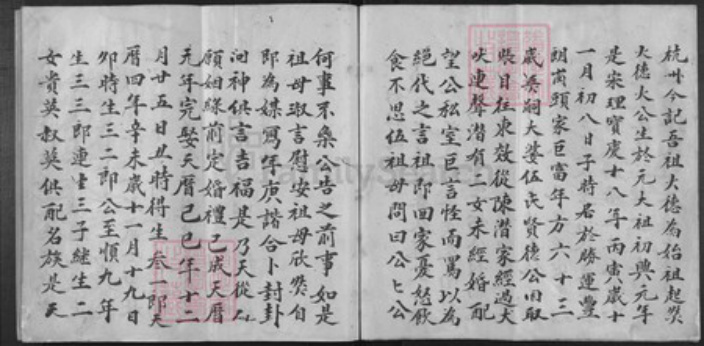 杭卅今記吾祖大德為始祖起祭
大德火公生於元大祖初興元年
是宋理寳慶十八年丙寅歲十
一月初八日子時居於勝運豐
朗崗頭家巨富年方六十三
歲英嗣大婆伍氏賢德公旧取
賬目往東效從陳潛家經過犬
吠連聲潛有二女未經婚配
望公私室巨言怪而罵以為
絕代之言祖即回家憂愁飲
食不思伍祖母問曰公匕公
何事不樂公告之前事如是
祖母淑言慰安祖母欣然自
即為媒寫年庚諧合卜封卦
问神俱言吉福是乃天從人
願姻緣前定婚禮已成天曆
元年完娶天曆己巳年十二
月廿五日丑時得生叁一郎天
曆四年辛未歲十一月十九日
卯時生三二郎公至順九年
生三三郎連生三子継生二
女貴英叔英俱配名族是天
FamilySearch